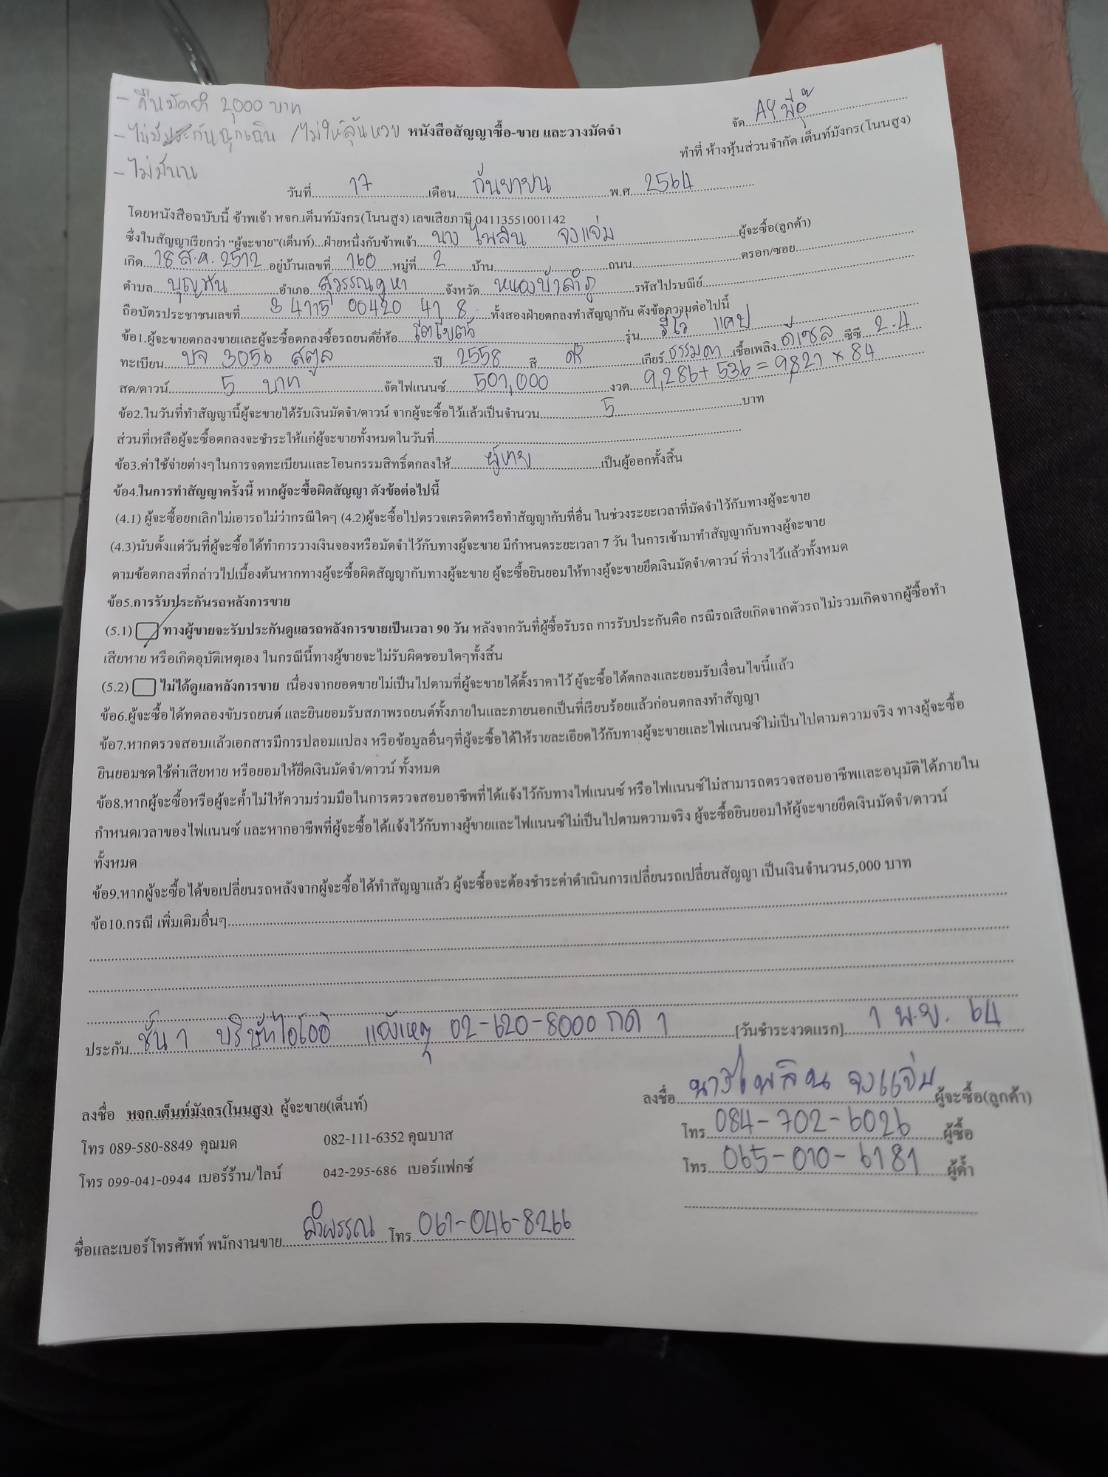 - คืนมัดจำ 2,000 บาท
- ไม่มีประกันฉุกเฉิน /ไม่ให้ลุ้นหวย
- ไม่มี
จัด AY พี่อุ๊
หนังสือสัญญาซื้อ-ขาย และวางมัดจำ
ทำที่ ห้างหุ้นส่วนจำกัด เต็นท์มังกร(โนนสูง)
วันที่ 17 เดือน กันยายน พ.ศ. 2564
โดยหนังสือฉบับนี้ ข้าพเจ้า หจก.เต็นท์มังกร(โนนสูง) เลขเสียภาษี 04113551001142
ซึ่งในสัญญาเรียกว่า "ผู้จะขาย"(เต็นท์)...ฝ่ายหนึ่งกับข้าพเจ้า นาง ไพลิน จงแจ่ม ผู้จะซื้อ(ลูกค้า)
เกิด 18 ส.ค. 2512 อยู่บ้านเลขที่ 160 หมู่ที่ 2 บ้าน ถนน ตรอก/ซอย
ตำบล บุญทัน อำเภอ สุวรรณคูหา จังหวัด หนองบัวลำภู รหัสไปรษณีย์
ถือบัตรประชาชนเลขที่ 3 4115 00420 41 8 ทั้งสองฝ่ายตกลงทำสัญญากัน ดังข้อความต่อไปนี้
ข้อ1.ผู้จะขายตกลงขายและผู้จะซื้อตกลงซื้อรถยนต์ยี่ห้อ โตโยต้า รุ่น รีโว่ แคป
ทะเบียน บจ 3056 สตูล ปี 2558 สี ดำ เกียร์ ธรรมดา เชื้อเพลิง ดีเซล ซีซี 2.4
สด/ดาวน์ 5 บาท จัดไฟแนนซ์ 507,000 งวด 9,286+536=9,821 × 84
ข้อ2.ในวันที่ทำสัญญานี้ผู้จะขายได้รับเงินมัดจำ/ดาวน์ จากผู้จะซื้อไว้แล้วเป็นจำนวน 5 บาท
ส่วนที่เหลือผู้จะซื้อตกลงจะชำระให้แก่ผู้จะขายทั้งหมดในวันที่
ข้อ3.ค่าใช้จ่ายต่างๆในการจดทะเบียนและโอนกรรมสิทธิ์ตกลงให้ ผู้ขาย เป็นผู้ออกทั้งสิ้น
ข้อ4.ในการทำสัญญาครั้งนี้ หากผู้จะซื้อผิดสัญญา ดังข้อต่อไปนี้
(4.1) ผู้จะซื้อยกเลิกไม่เอารถไม่ว่ากรณีใดๆ (4.2)ผู้จะซื้อไปตรวจเครดิตหรือทำสัญญากับที่อื่น ในช่วงระยะเวลาที่มัดจำไว้กับทางผู้จะขาย
(4.3)นับตั้งแต่วันที่ผู้จะซื้อได้ทำการวางเงินจองหรือมัดจำไว้กับทางผู้จะขาย มีกำหนดระยะเวลา 7 วัน ในการเข้ามาทำสัญญากับทางผู้จะขาย
ตามข้อตกลงที่กล่าวไปเบื้องต้นหากทางผู้จะซื้อผิดสัญญากับทางผู้จะขาย ผู้จะซื้อยินยอมให้ทางผู้จะขายยึดเงินมัดจำ/ดาวน์ ที่วางไว้แล้วทั้งหมด
ข้อ5.การรับประกันรถหลังการขาย
(5.1) ทางผู้ขายจะรับประกันดูแลรถหลังการขายเป็นเวลา 90 วัน หลังจากวันที่ผู้ซื้อรับรถ การรับประกันคือ กรณีรถเสียเกิดจากตัวรถไม่รวมเกิดจากผู้ซื้อทำ
เสียหาย หรือเกิดอุบัติเหตุเอง ในกรณีนี้ทางผู้ขายจะไม่รับผิดชอบใดๆทั้งสิ้น
(5.2) ไม่ได้ดูแลหลังการขาย เนื่องจากยอดขายไม่เป็นไปตามที่ผู้จะขายได้ตั้งราคาไว้ ผู้จะซื้อได้ตกลงและยอมรับเงื่อนไขนี้แล้ว
ข้อ6.ผู้จะซื้อได้ทดลองขับรถยนต์ และยินยอมรับสภาพรถยนต์ทั้งภายในและภายนอกเป็นที่เรียบร้อยแล้วก่อนตกลงทำสัญญา
ข้อ7.หากตรวจสอบแล้วเอกสารมีการปลอมแปลง หรือข้อมูลอื่นๆที่ผู้จะซื้อได้ให้รายละเอียดไว้กับทางผู้จะขายและไฟแนนซ์ไม่เป็นไปตามความจริง ทางผู้จะซื้อ
ยินยอมชดใช้ค่าเสียหาย หรือยอมให้ยึดเงินมัดจำ/ดาวน์ ทั้งหมด
ข้อ8.หากผู้จะซื้อหรือผู้จะค้ำไม่ให้ความร่วมมือในการตรวจสอบอาชีพที่ได้แจ้งไว้กับทางไฟแนนซ์ หรือไฟแนนซ์ไม่สามารถตรวจสอบอาชีพและอนุมัติได้ภายใน
กำหนดเวลาของไฟแนนซ์ และหากอาชีพที่ผู้จะซื้อได้แจ้งไว้กับทางผู้ขายและไฟแนนซ์ไม่เป็นไปตามความจริง ผู้จะซื้อยินยอมให้ผู้จะขายยึดเงินมัดจำ/ดาวน์
ทั้งหมด
ข้อ9.หากผู้จะซื้อได้ขอเปลี่ยนรถหลังจากผู้จะซื้อได้ทำสัญญาแล้ว ผู้จะซื้อจะต้องชำระค่าดำเนินการเปลี่ยนรถเปลี่ยนสัญญา เป็นเงินจำนวน5,000 บาท
ข้อ10.กรณี เพิ่มเติมอื่นๆ
ประกัน ชั้น 1 บริษัทไอโออิ แจ้งเหตุ 02-620-8000 กด 1 [วันชำระงวดแรก] 1 พ.ย. 64
ลงชื่อ หจก.เต็นท์มังกร(โนนสูง) ผู้จะขาย(เต็นท์)
ลงชื่อ นางไพลิน จงแจ่ม ผู้จะซื้อ(ลูกค้า)
โทร 089-580-8849 คุณมด 082-111-6352 คุณบาส
โทร 084-702-6026 ผู้ซื้อ
โทร 099-041-0944 เบอร์ร้าน/ไลน์ 042-295-686 เบอร์แฟกซ์
โทร 065-010-6181 ผู้ค้ำ
ชื่อและเบอร์โทรศัพท์ พนักงานขาย ลำพรรณ โทร 061-046-8266